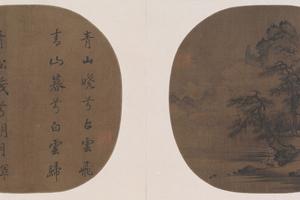 青山曉兮白雲飛
青山暮兮白雲歸
青山幾兮明月輝